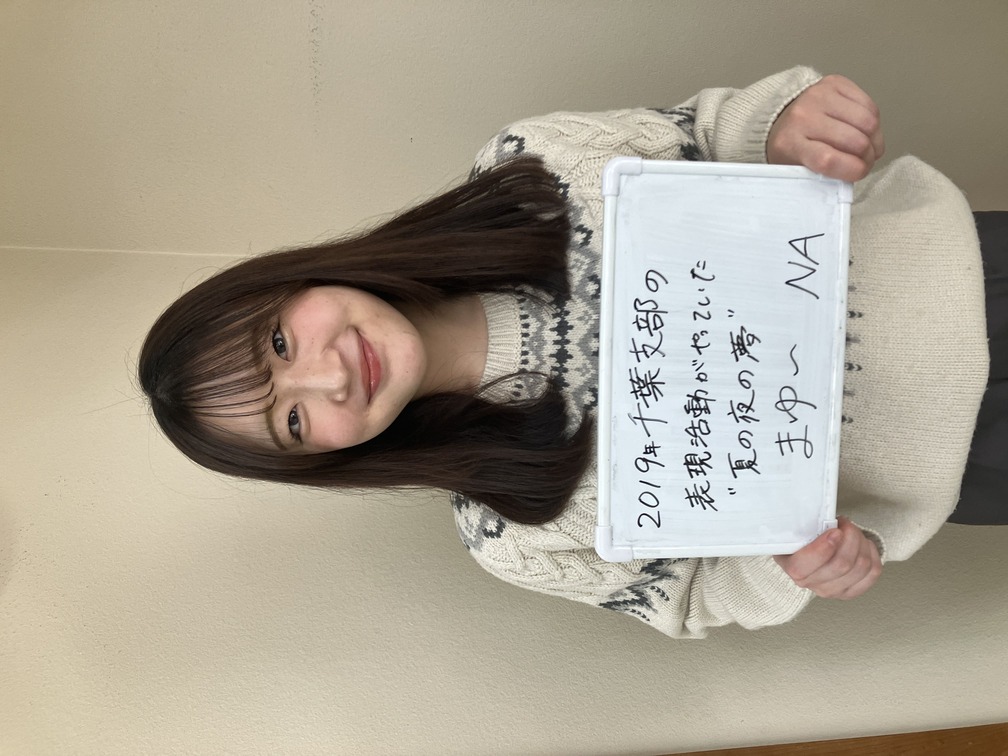 2019年千葉支部の
表現活動がやっていた
"夏の夜の夢"
まゆ〜 NA